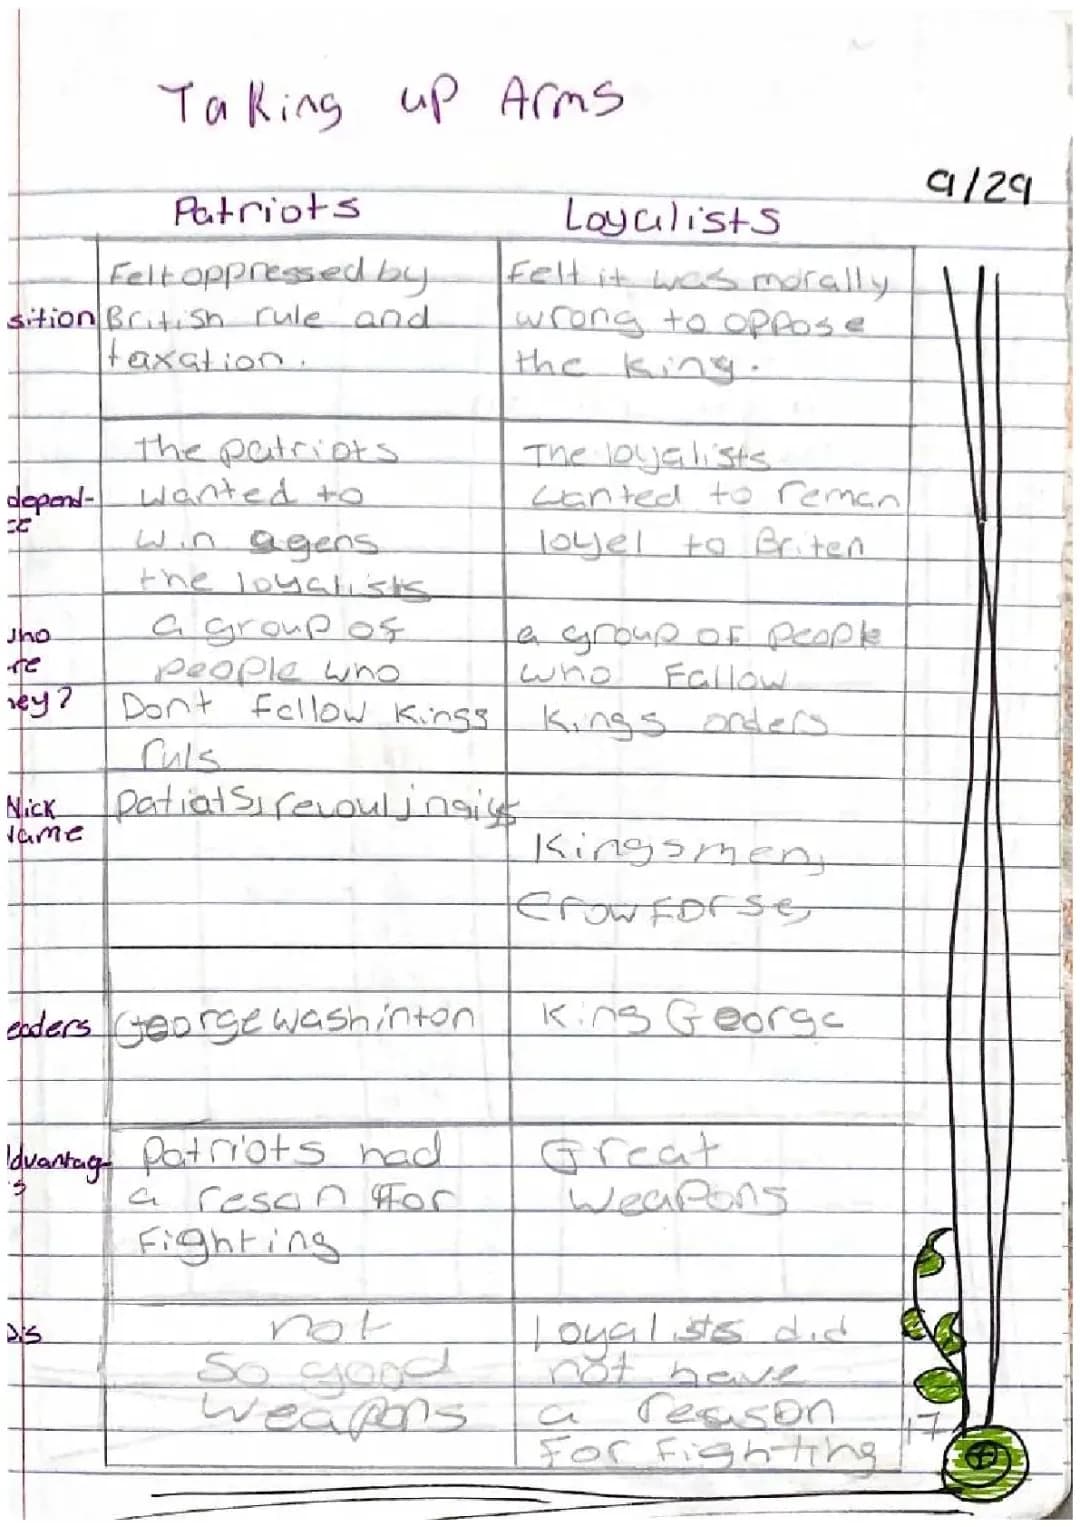 Taking up Arms
9/29
Patriots Loyalists
Felt oppressed by Felt it was morally
sition British rule and wrong to oppose
taxation. the King.
the patriots The loyalists
depend- wanted to wanted to reman
win agens loyel to Briten
the loyalists
who a group of a group of people
re people who who Fallow
hey? Dont fellow Kings Kings orders
ruls
Nick Patiats,
Name Kingsmen,
Crow Forse,
eaders George washinton King George
dvantag Patriots had Great
s a resan for weapons
Fighting
Dis not Loyalists did
so good not have
weapons a reason 17
For Fighting